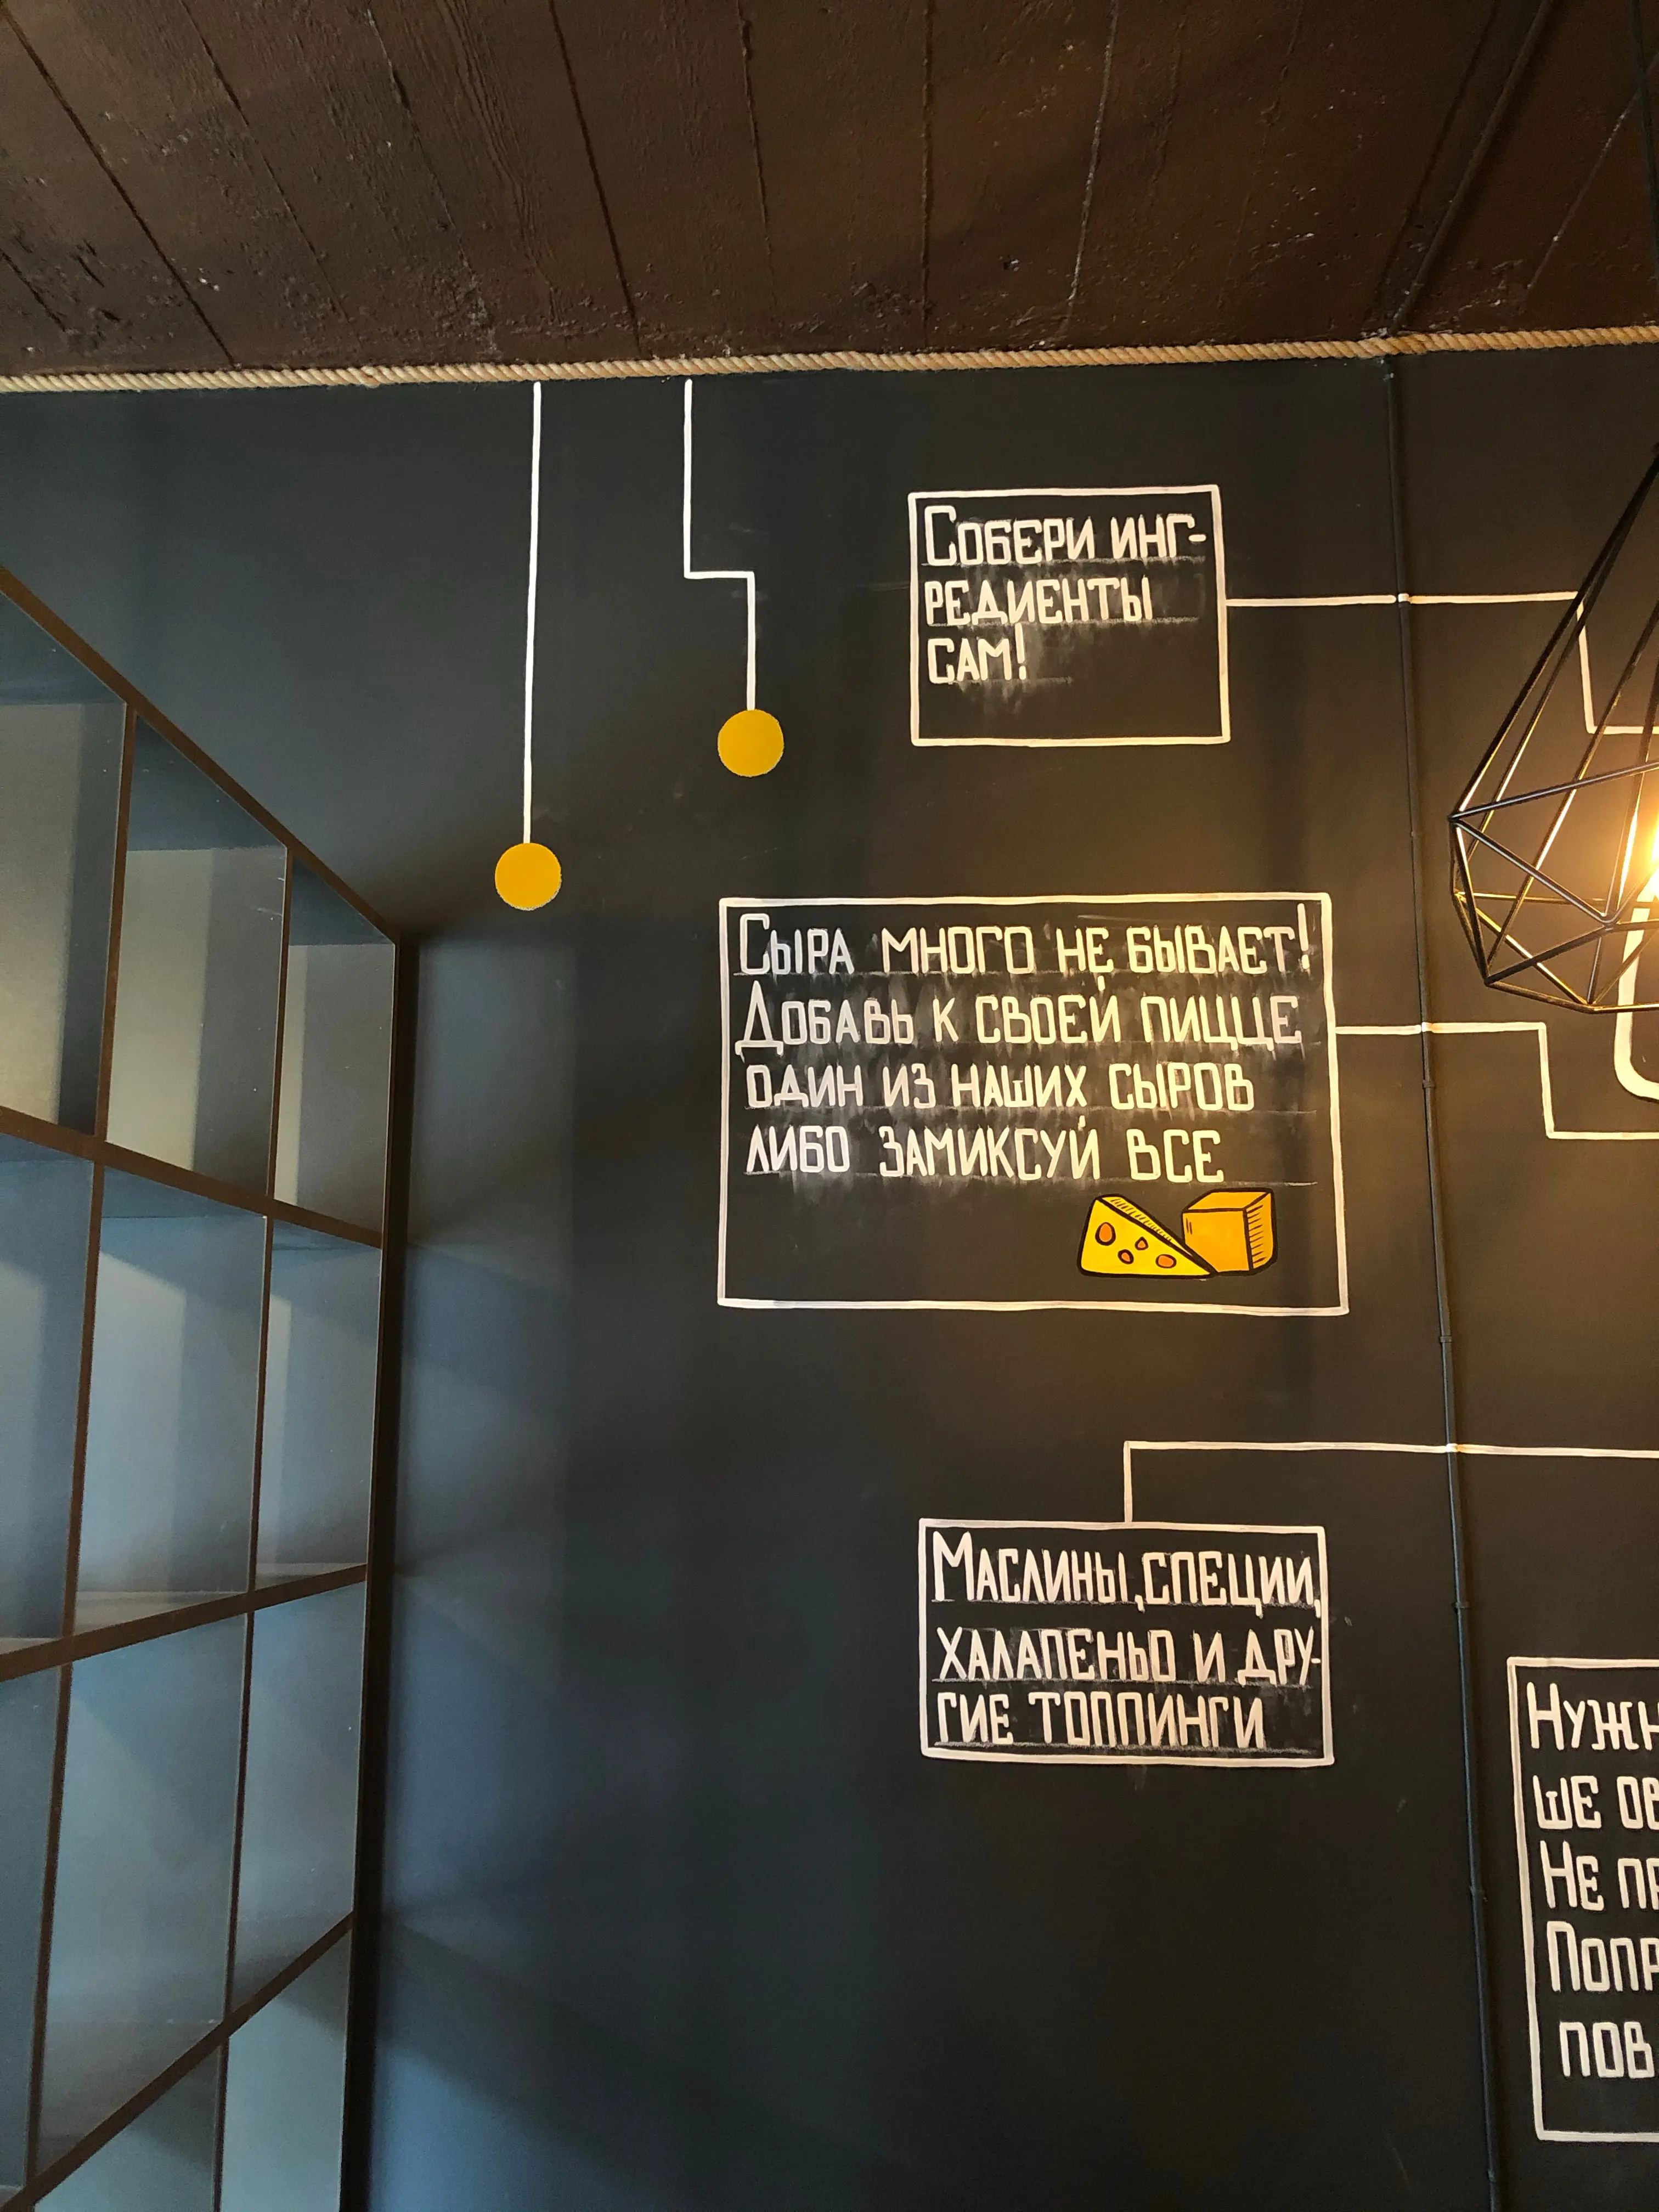 Собери инг-
редиенты
сам!
Сыра много не бывает!
Добавь к своей пицце
один из наших сыров
либо замиксуй все
Маслины, специи,
халапеньо и дру-
гие топпинги
ше
Не
пов